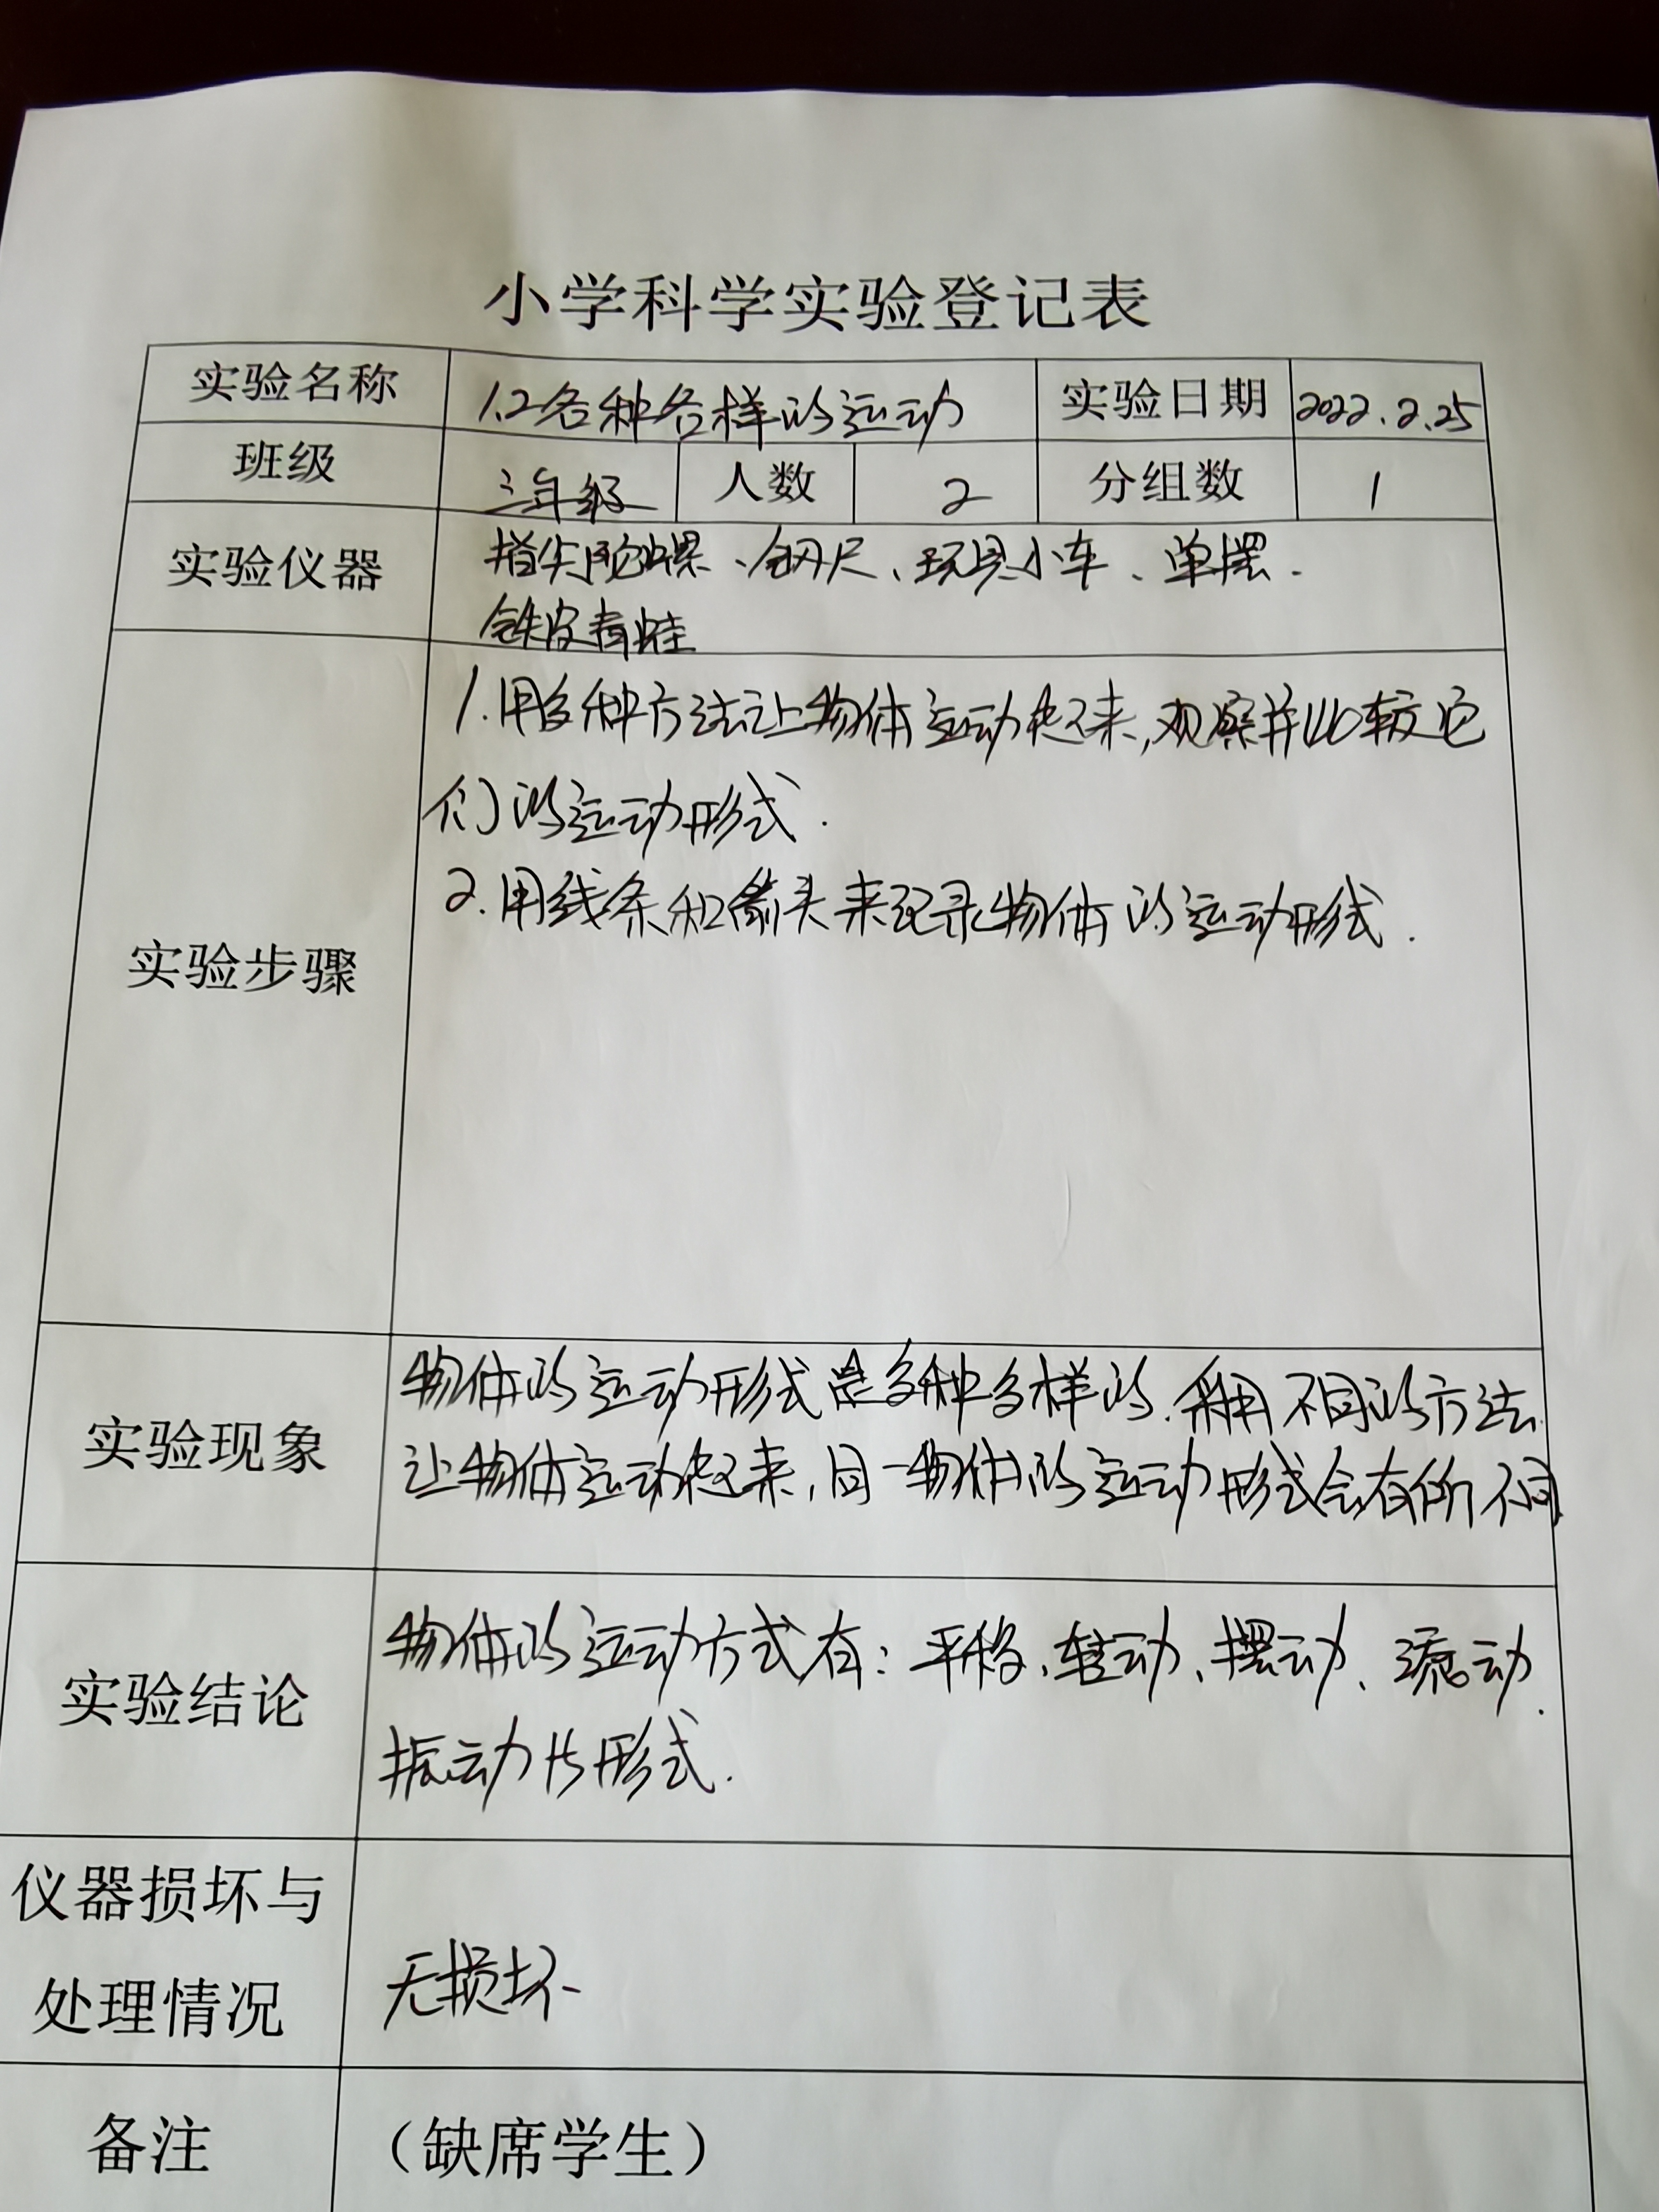 小学科学实验登记表
实验名称 1.2各种各样的运动 实验日期 2022.2.25
班级 三年级 人数 2 分组数 1
实验仪器 指尖陀螺、钢尺、玩具小车、单摆.
铁皮青蛙
1.用多种方法让物体运动起来,观察并比较它
们的运动形式.
2.用线条和箭头来记录物体的运动形式.
实验步骤
物体的运动形式是多种多样的.利用不同的方法
实验现象
让物体运动起来,同一物体的运动形式会有所不同
物体的运动方式有:平移、转动、摆动、滚动.
实验结论
振动什形式.
仪器损坏与
处理情况
无损坏
备注 (缺席学生)